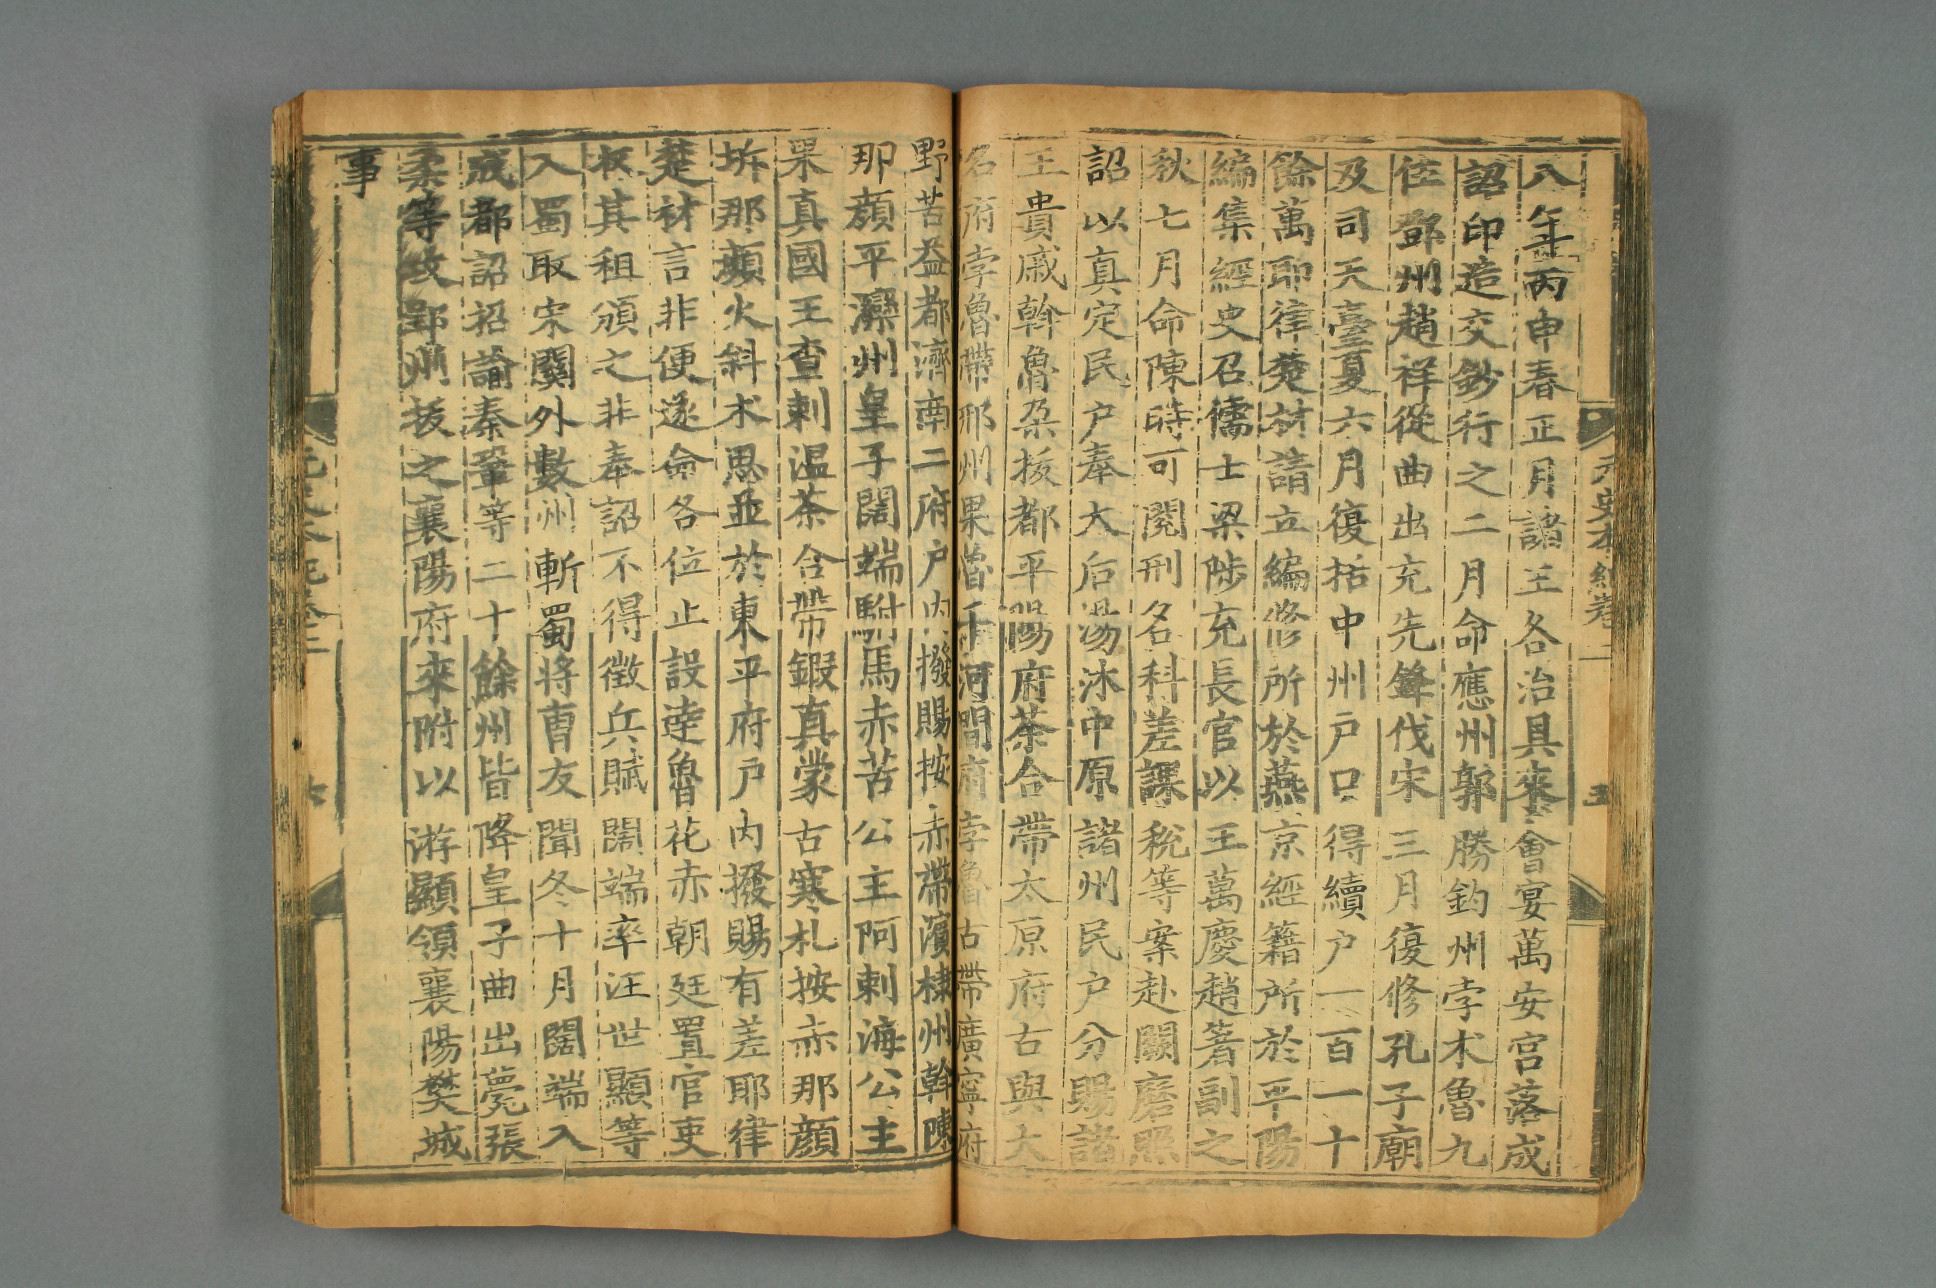 元史本紀卷二 五
八年丙申春正月諸王各治具來會宴萬安宮落成
詔印造交鈔行之二月命應州郭勝鈞州孛朮魯九
住鄧州趙祥從曲出充先鋒伐宋三月復修孔子廟
及司天臺夏六月復括中州戶口得續戶一百一十
餘萬耶律楚材請立編修所於燕京經籍所於平陽
編集經史召儒士梁陟充長官以王萬慶趙著副之
秋七月命陳時可閱刑名科差課稅等案赴闕磨照
詔以真定民戶奉太后湯沐中原諸州民戶分賜諸
王貴戚斡魯朶拔都平陽府茶合帶太原府古與大
名府孛魯帶邢州果魯干河間府孛魯古帶廣寧府
野苦益都濟南二府戶內撥賜按赤帶濱棣州斡陳
那顏平灤州皇子闊端駙馬赤苦公主阿剌海公主
果真國王查剌溫茶合帶鍜真蒙古寒札按赤那顏
圻那顏火斜朮思並於東平府戶內撥賜有差耶律
楚材言非便遂命各位止設達魯花赤朝廷置官吏
收其租頒之非奉詔不得徵兵賦闊端率汪世顯等
入蜀取宋關外數州斬蜀將曹友聞冬十月闊端入
成都詔招諭秦鞏等二十餘州皆降皇子曲出薨張
柔等攻郢州拔之襄陽府來附以游顯領襄陽樊城
事